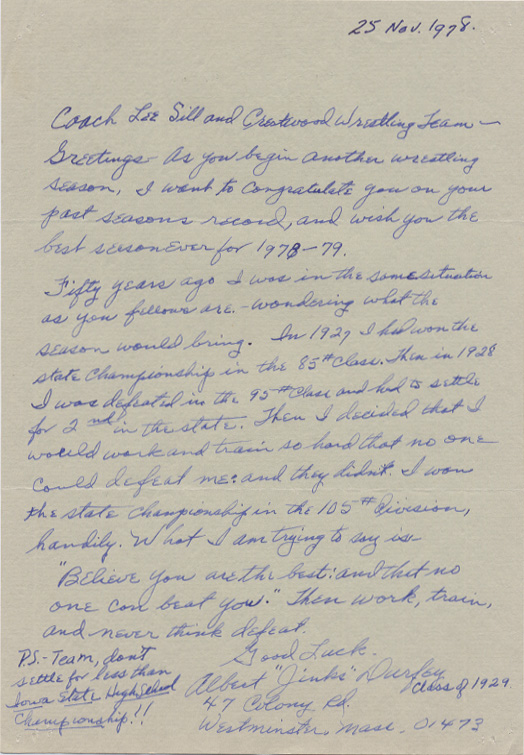 25 Nov. 1978.
Coach Lee Sill and Crestwood Wrestling Team —
Greetings - As you begin another wrestling
season, I want to congratulate you on your
past seasons record, and wish you the
best season ever for 1978-79.
Fifty years ago I was in the same situation
as you fellows are. - wondering what the
season would bring. In 1927 I had won the
state championship in the 85# class. Then in 1928
I was defeated in the 95# class and had to settle
for 2nd in the state. Then I decided that I
would work and train so hard that no one
could defeat me: and they didn't. I won
the state championship in the 105# division,
handily. What I am trying to say is -
"Believe you are the best: and that no
one can beat you." Then work, train,
and never think defeat.
Good Luck.
Albert "Jinks" Durfey
Class of 1929
47 Colony Rd.
Westminster, Mass. 01473
P.S. - Team, don't
settle for less than
Iowa State High School
Championship!!